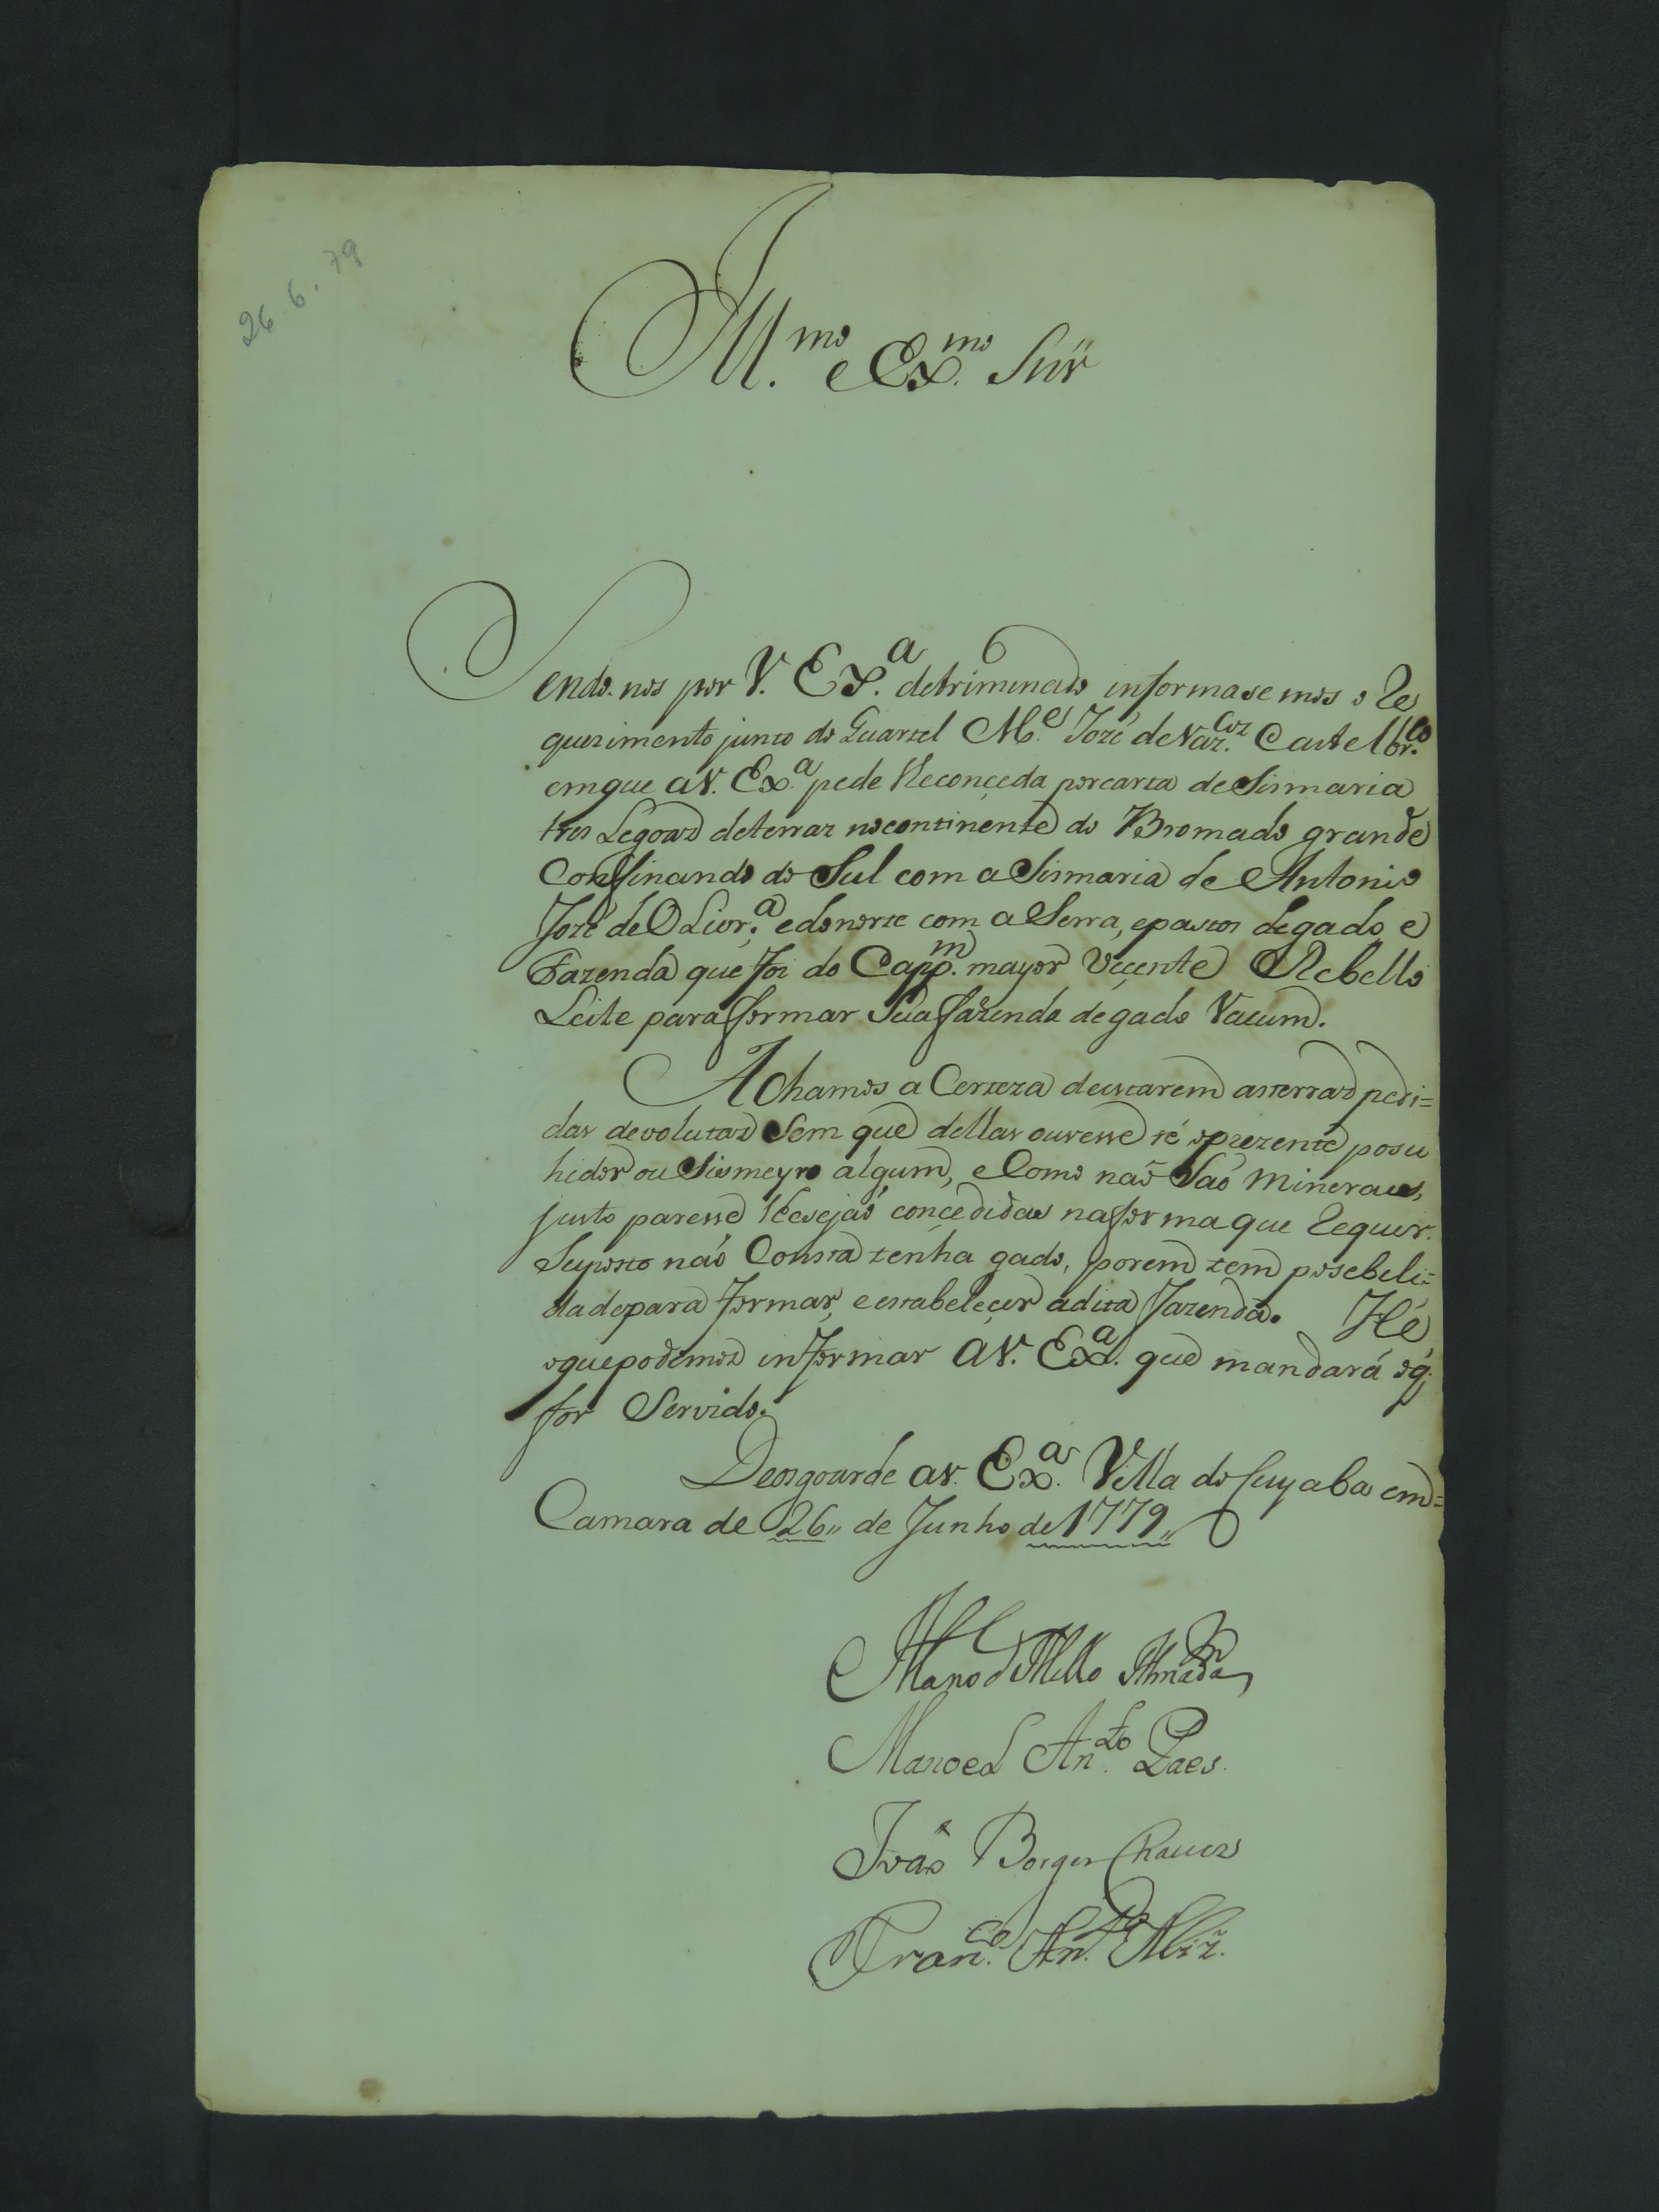 26.6.79
Ill.mo e Ex.mo Snr
Sendo-nos por V. Ex.a detriminado informasemos o Re
querimento junto do Quartel M.e Jozé de Vaz.cos Castelbr.co
emque aV. Ex.a pede lheconçeda porcarta de Sismaria
tres Legoas deterras nocontinente do Bromado grande
Confinando do Sul com a Sismaria de Antonio
Jozé de OLivr.a edonorte com a Serra, epastos degado e
Fazenda que foi do Capp.m mayor Viçente Rebello
Leite paraformar Suafazenda degado Vacum.
Achamos a Certeza deestarem asterras pedi=
das devolutas Sem que dellas ouvesse té oprezente posu
hidor ou Sismeyro algum, e Como naõ Saõ Mineraes,
justo paresse lhesejaõ conçedidas naforma que Requer.
Suposto naõ Consta tenha gado, porem tem posebeli=
dadepara formar, e estabeleçer adita fazenda. Hé
oquepodemos informar aV. Ex.a que mandará oq.
for Servido.
Deosgoarde aV. Ex.a Villa do Cuyaba em=
Camara de 26,, de Junho de 1779,,
Mano d Mello Almada
Manoel An.to Paes.
Joaõ Borges Chaves
Fran.co An.to